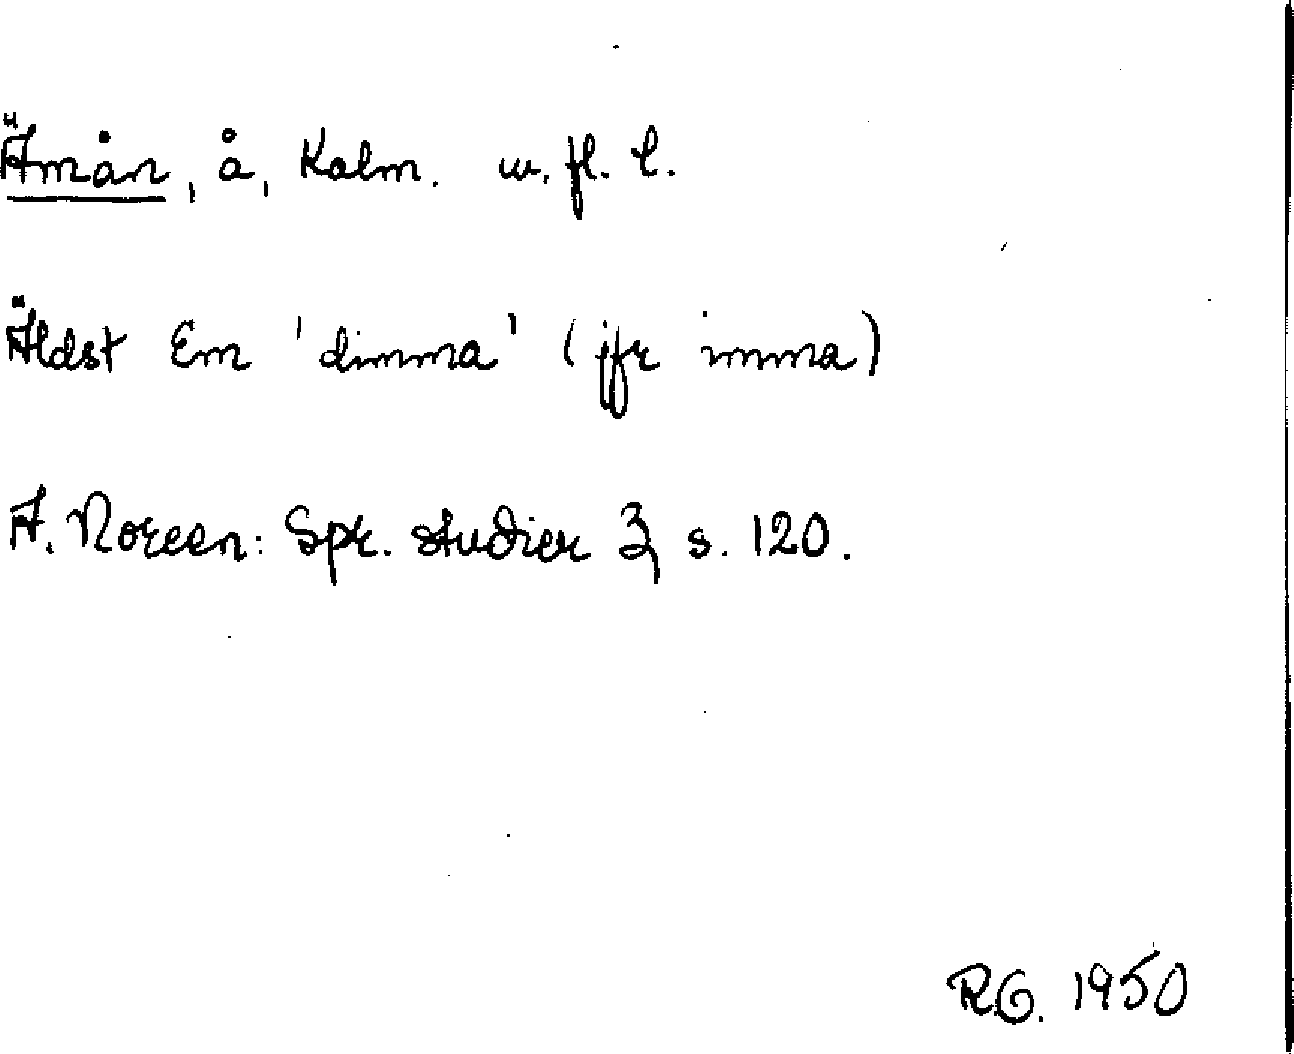 Ämån, å, Kalm. u. fl. l.
Äldst Em 'dimma' (jfr imma)
A. Noreen: Spr. studier 3, s. 120.
R.G. 1950